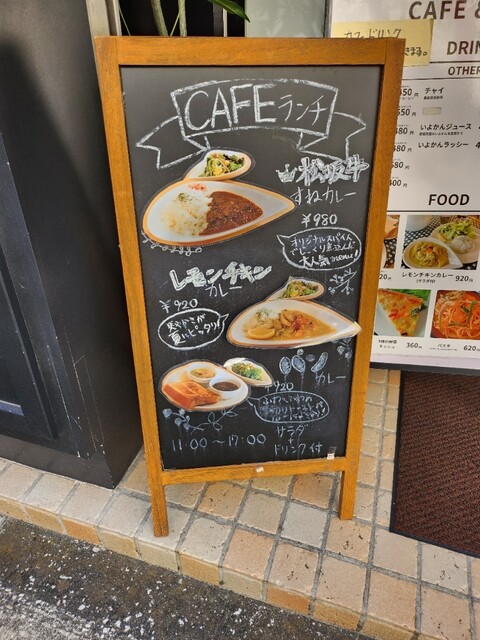 CAFE ランチ
松阪牛
すねカレー
￥980
オリジナルスパイスで
じっくり煮込んだ
大人気menu!
レモンチキン
カレー
￥920
爽やかさが
夏にピッタリ!
￥920
カレー
サラダ
+
ドリンク付
11:00～17:00
CAFE &
DRIN
OTHER
カフェドリンク
きます。
チャイ
いよかんジュース
いよかんラッシー
FOOD
レモンチキンカレー
(サラダ付)
920円
360円
パスタ
620